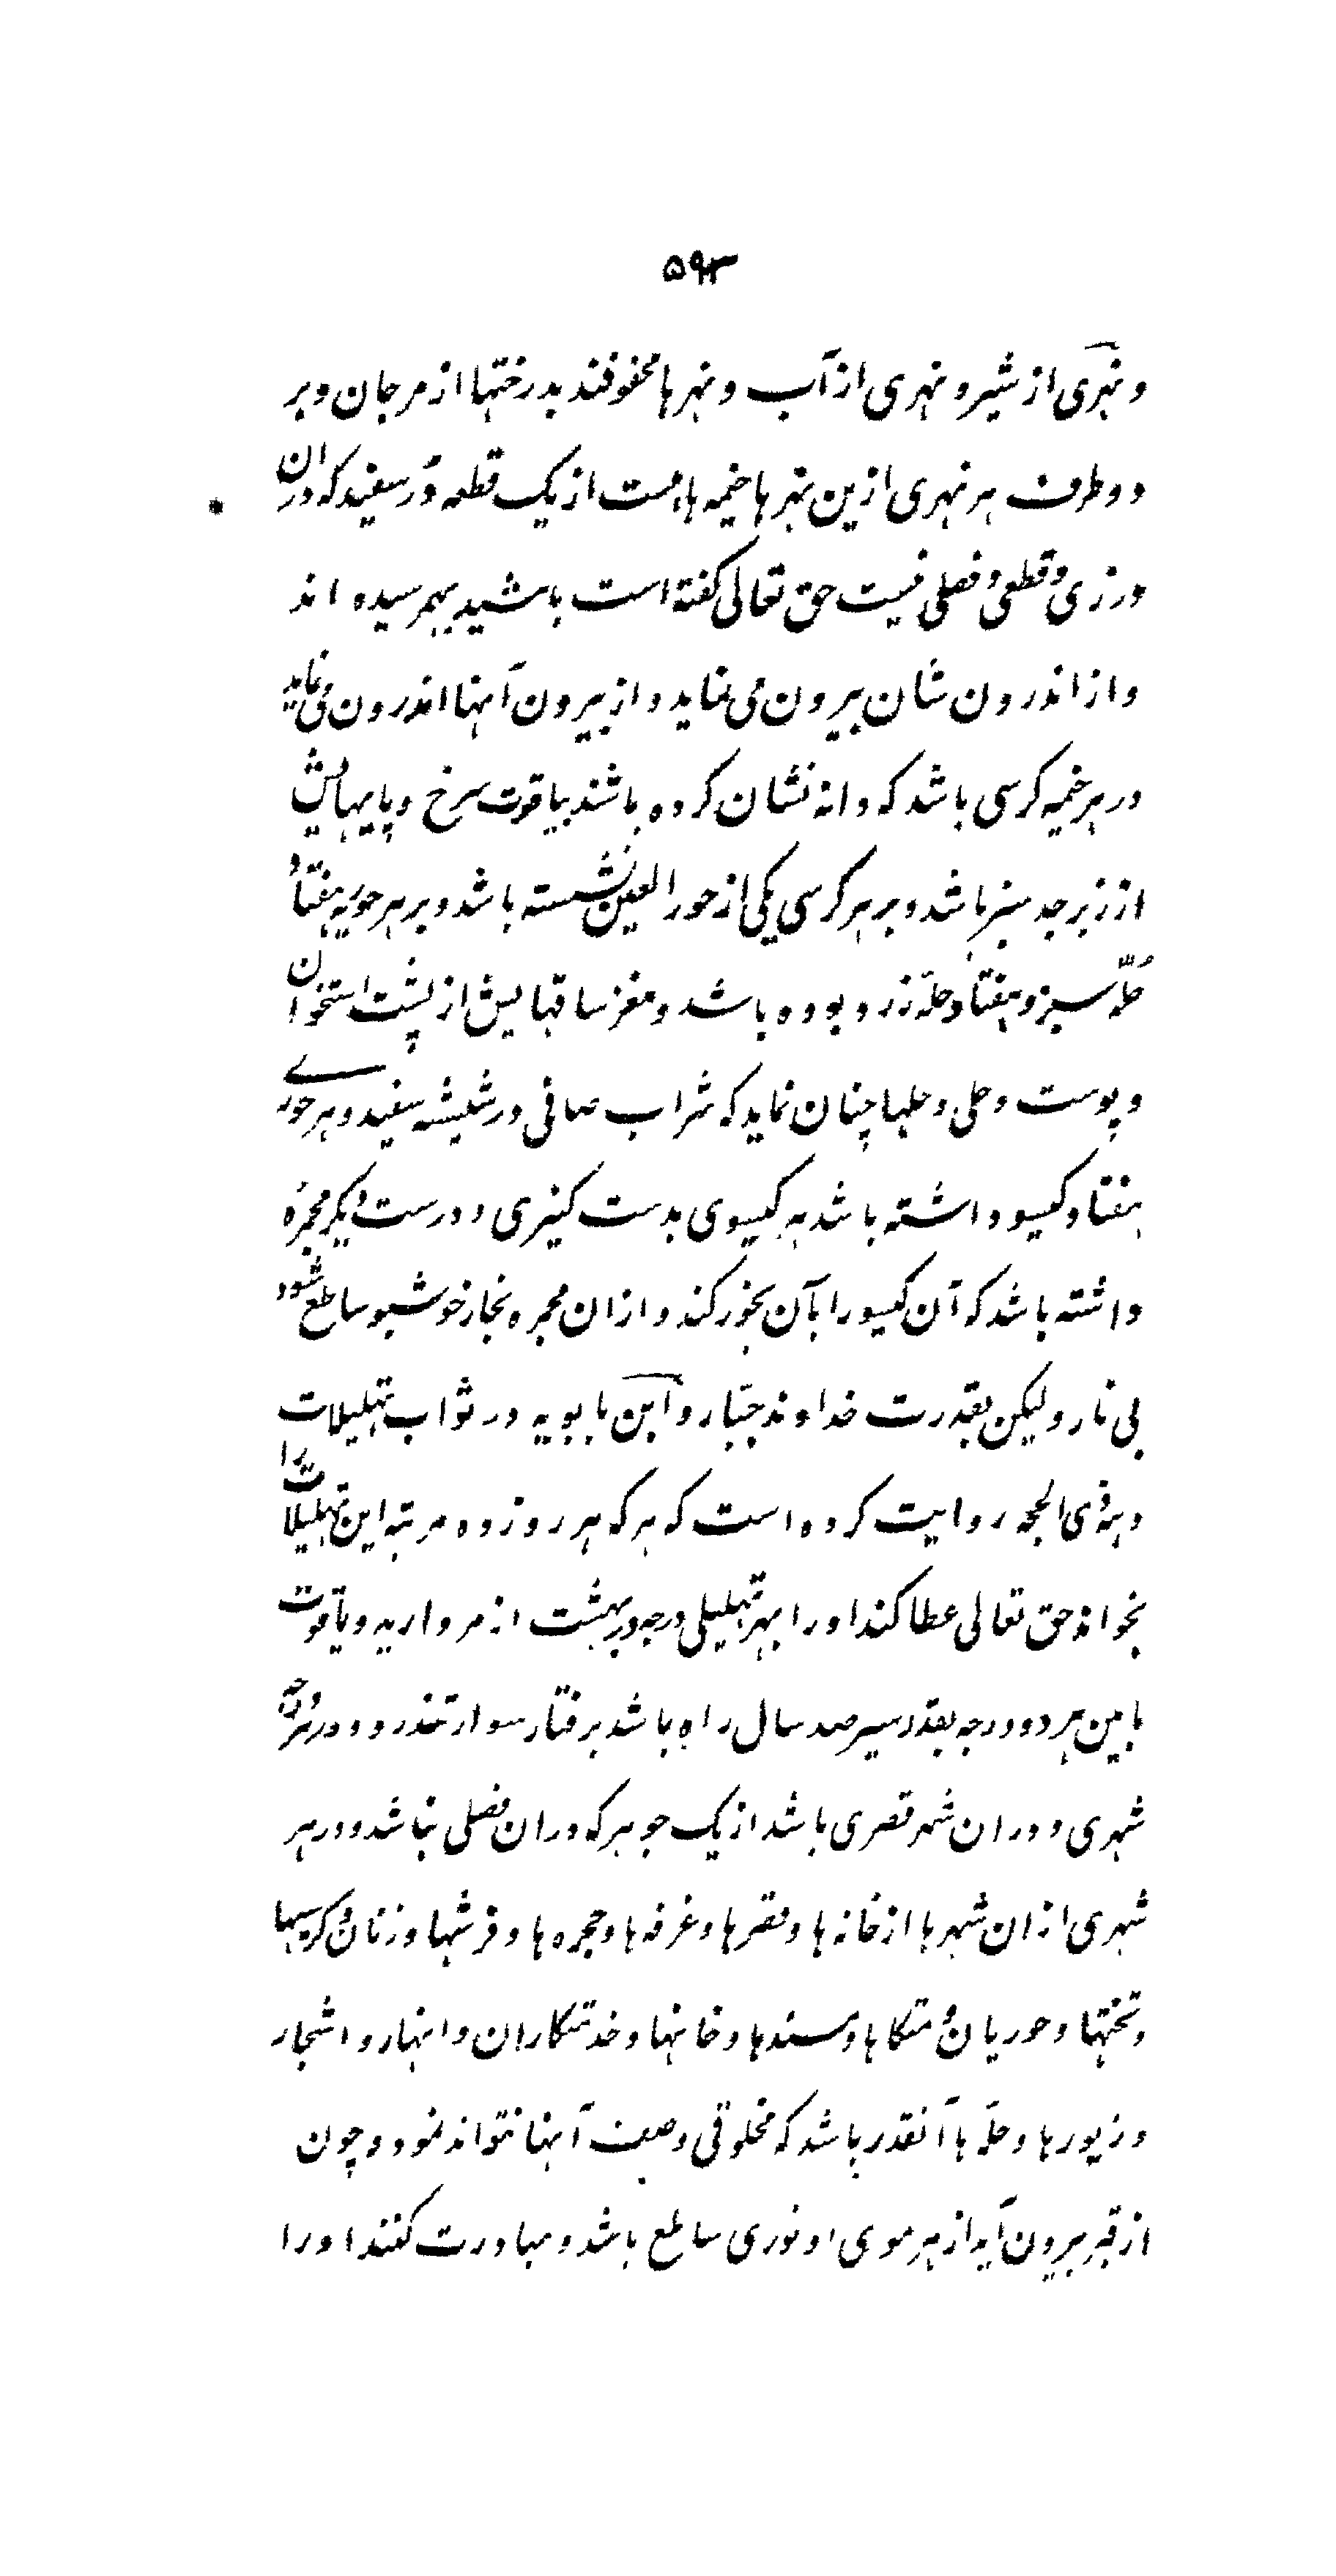 ۵۹۳
و نهری از شیر و نهری از آب و نهرها محفوفند بدرختها از مرجان و بر
دو طرف هر نهری ازین نهرها خیمه ها هست از یک قطعه دُر سفید که در ان
درزی و قطعی و فصلی نیست حق تعالی گفته است باشید بهمرسیده اند
و از اندرون شان بیرون می نماید و از بیرون آنها اندرون می نماید
در هر خیمه کرسی باشد که دانه نشان کرده باشند بیاقوت سرخ و پایهایش
از زبرجد سبز باشد و بر هر کرسی یکی از حورالعین نشسته باشد و بر هر حوریه هفتاد
حُلّه سبز و هفتاد حلّه زرد بوده باشد و مغز ساقهایش از پشت استخوان
و پوست و حلی و حلها چنان نماید که شراب صافی در شیشه سفید و هر حوری
هفتاد کیسو داشته باشد هر کیسوی بدست کنیزی و در دست دیکر مجمره
داشته باشد که آن کیسو را بآن بخور کند و ازان مجمره بخار خوشبو ساطع شود
بی نار ولیکن بقدرت خداوند جبّار و ابن بابویه در ثواب تهلیلات
دهه ذی الحجه روایت کرده است که هر که هر روز ده مرتبه این تهلیلات را
بخواند حق تعالی عطا کند او را بهر تهلیلی درجه در بهشت از مروارید و یاقوت
مابین هر دو درجه بقدر سیر صد سال راه باشد برفتار سوار تندرو و در هر درجه
شهری و دران شهر قصری باشد از یک جوهر که دران فصلی نباشد و در هر
شهری ازان شهرها از خانه ها و قصرها و غرفه ها و حجره ها و فرشها و زنان و کرسیها
و تختها و حوریان و متکاها و مسندها و خانها و خدمتکاران و انهار و اشجار
و زیورها و حلّه ها آنقدر باشد که مخلوقی وصف آنها نتواند نمود و چون
از قبر بیرون آید از هر موی او نوری ساطع باشد و مبادرت کنند او را